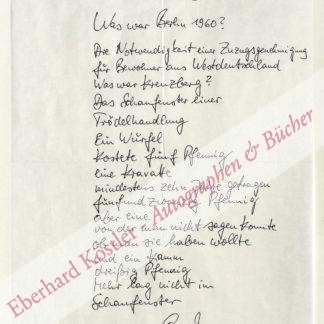 Was war Berlin 1960?
Die Notwendigkeit einer Zuzugsgenehmigung
für Bewohner aus Westdeutschland
Was war Kreuzberg?
Das Schaufenster einer
Trödelhandlung
Ein Würfel
kostete fünf Pfennig
eine Kravatte
mindestens zehn getragen
fünfundzwanzig Pfennig
aber eine
von der man nicht sagen konnte
ob man sie haben wollte
und ein Kamm
dreißig Pfennig
Mehr lag nicht im
Schaufenster
Eberhard Köstler - Autographen & Bücher